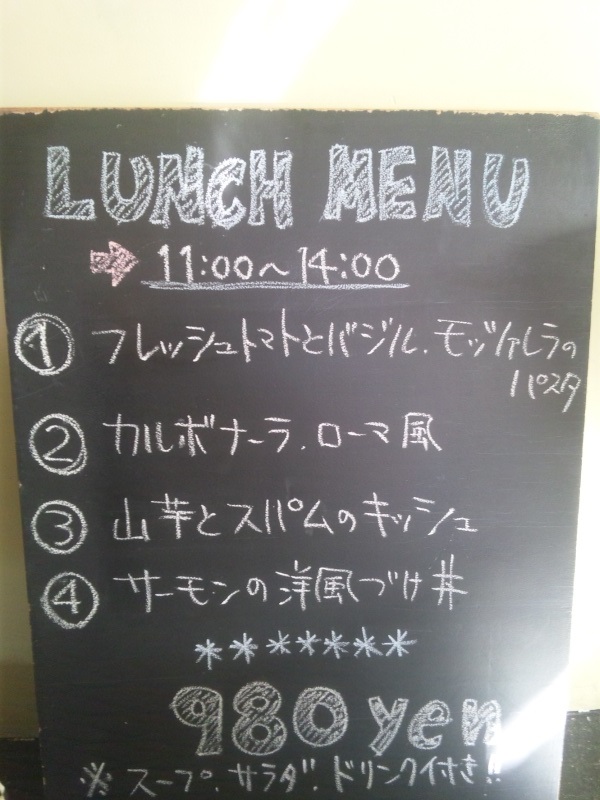 LUNCH MENU
⇨ 11:00〜14:00
① フレッシュトマトとバジル、モッツァレラの
パスタ
② カルボナーラ、ローマ風
③ 山芋とスパムのキッシュ
④ サーモンの洋風づけ丼
*******
980 yen
※スープ、サラダ、ドリンク付き!!